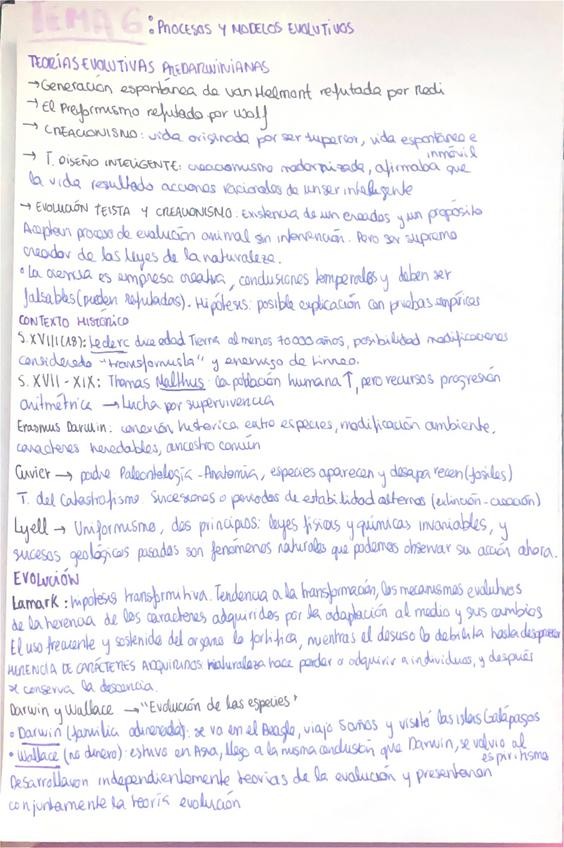 TEMA 6: PROCESOS Y MODELOS EVOLUTIVOS
TEORÍAS EVOLUTIVAS PREDARWINIANAS
→ Generación espontánea de van Helmont refutada por Redi
→ El Preformismo refutado por Wolf
→ CREACIONISMO: vida originada por ser superior, vida espontánea e inmóvil
→ T. DISEÑO INTELIGENTE: creacionismo modernizado, afirmaba que
la vida resultado acciones racionales de un ser inteligente
→ EVOLUCIÓN TEISTA Y CREACIONISMO. Existencia de un creador y un propósito
Aceptan proceso de evolución animal sin intervención. Pero ser supremo
creador de las leyes de la naturaleza.
• La ciencia es empresa creativa, conclusiones temporales y deben ser
falsables (pueden refutados). Hipótesis: posible explicación con pruebas empíricas
CONTEXTO HISTÓRICO
S. XVIII (18): Leclerc dice edad Tierra al menos 70000 años, posibilidad modificaciones
considerado "transformista" y enemigo de Linneo.
S. XVII - XIX: Thomas Malthus: la población humana ↑, pero recursos progresión
aritmétrica → Lucha por supervivencia
Erasmus Darwin: conexión histórica entre especies, modificación ambiente,
caracteres heredables, ancestro común
Cuvier → padre Paleontología - Anatomía, especies aparecen y desaparecen (fósiles)
T. del Catastrofismo. Sucesiones o periodos de estabilidad alternos (extinción - creación)
Lyell → Uniformismo, dos principios: leyes físicas y químicas invariables, y
sucesos geológicos pasados son fenómenos naturales que podemos observar su acción ahora.
EVOLUCIÓN
Lamark: hipótesis transformutiva. Tendencia a la transformación, los mecanismos evolutivos
de la herencia de los caracteres adquiridos por la adaptación al medio y sus cambios
El uso frecuente y sostenido del órgano lo fortifica, mientras el desuso lo debilita hasta desaparecer
HERENCIA DE CARÁCTERES ADQUIRIDOS: Naturaleza hace perder o adquirir a individuos, y después
se conserva la descencia.
Darwin y Wallace → "Evolución de las especies"
• Darwin (familia adinerada): se va en el Beagle, viajó 5 años y visitó las islas Galápagos
• Wallace (no dinero): estuvo en Asia, llega a la misma conclusión que Darwin, se volvió al espiritismo
Desarrollaron independientemente teorías de la evolución y presentaron
conjuntamente la teoría evolución